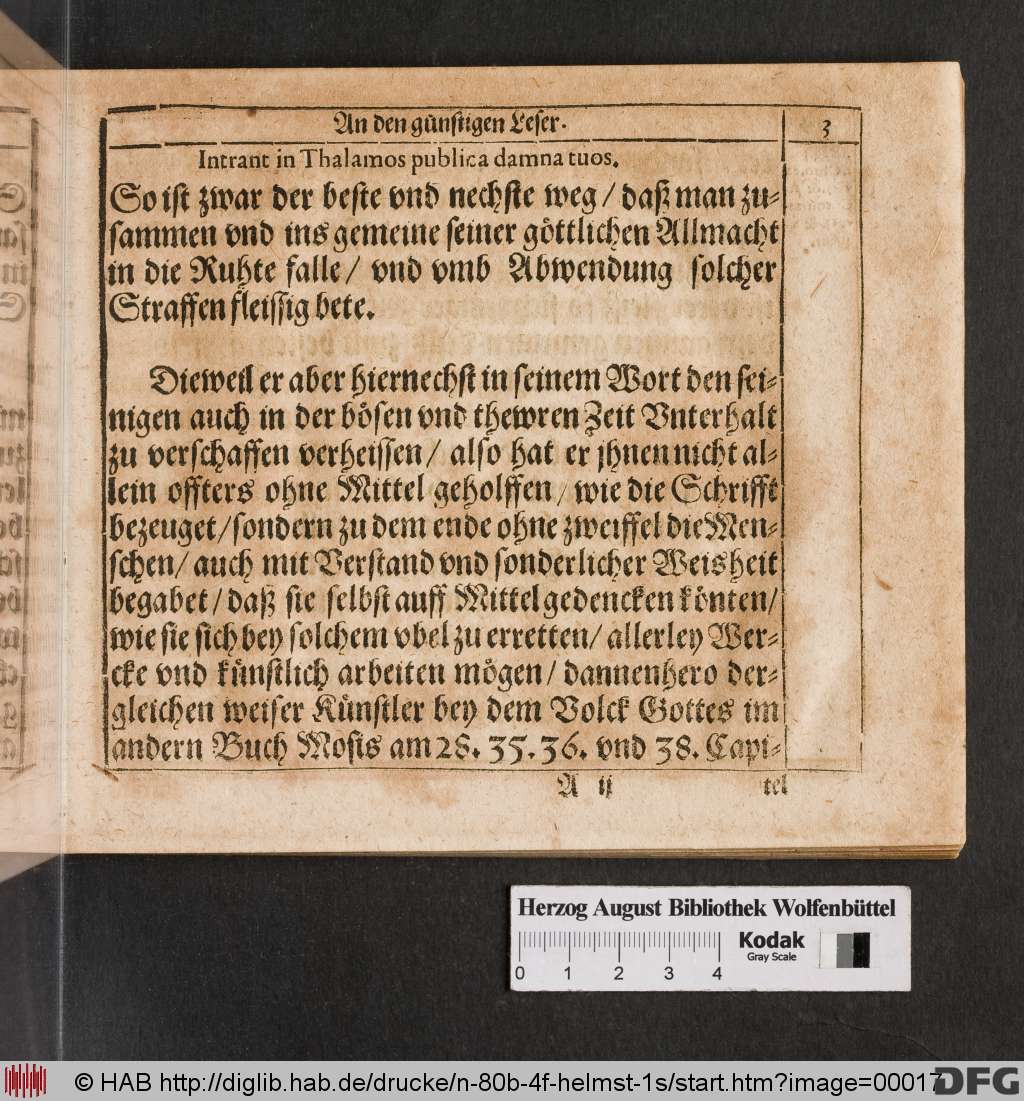 An den günstigen Leser.
3
Intrant in Thalamos publica damna tuos.
So ist zwar der beste vnd nechste weg / daß man zu-
sammen vnd ins gemeine seiner göttlichen Allmacht
in die Ruhte falle / vnd vmb Abwendung solcher
Straffen fleissig bete.
Dieweil er aber hiernechst in seinem Wort den sei-
nigen auch in der bösen vnd thewren Zeit Vnterhalt
zu verschaffen verheissen / also hat er jhnen nicht al-
lein offters ohne Mittel geholffen / wie die Schrifft
bezeuget / sondern zu dem ende ohne zweiffel die Men-
schen / auch mit Verstand vnd sonderlicher Weisheit
begabet / daß sie selbst auff Mittel gedencken könten /
wie sie sich bey solchem vbel zu erretten / allerley Wer-
cke vnd künstlich arbeiten mögen / dannenhero der-
gleichen weiser Künstler bey dem Volck Gottes im
andern Buch Mosis am 28. 35. 36. vnd 38. Capi-
A ij
tel
Herzog August Bibliothek Wolfenbüttel
0 1 2 3 4
Kodak
Gray Scale
© HAB http://diglib.hab.de/drucke/n-80b-4f-helmst-1s/start.htm?image=00017
DFG